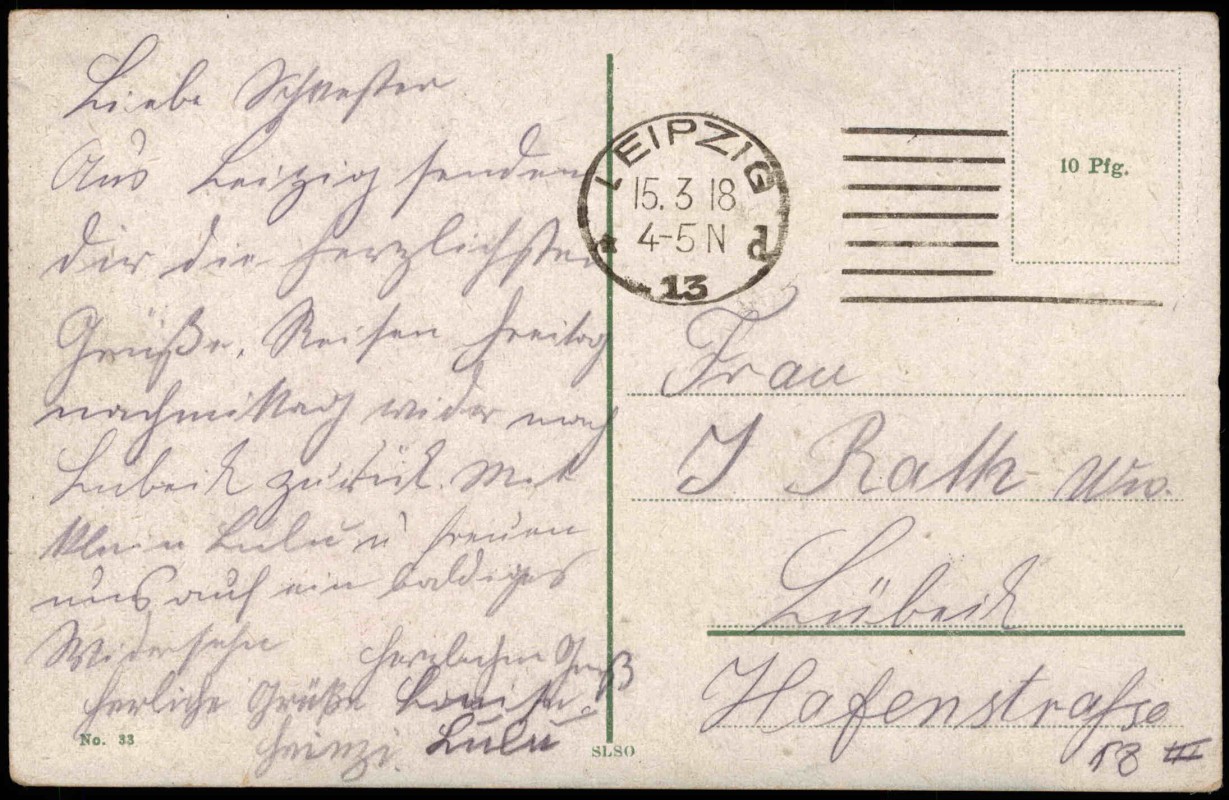 Liebe Schwester
Aus Leipzig senden
dir die herzlichsten
Grüße, Reisen Freitag
nachmittag wider nach
Lübeck zurück. Mit
klein Lulu u freuen
uns auf ein baldiges
Widersehn
herzlichen Gruß
herliche Grüße Louise.
Heinzi. Lulu
No. 33
SLSO
LEIPZIG
15. 3 18
4-5 N
* 13 d
10 Pfg.
Frau
J Rath Ww.
Lübeck
Hafenstraße
18 III